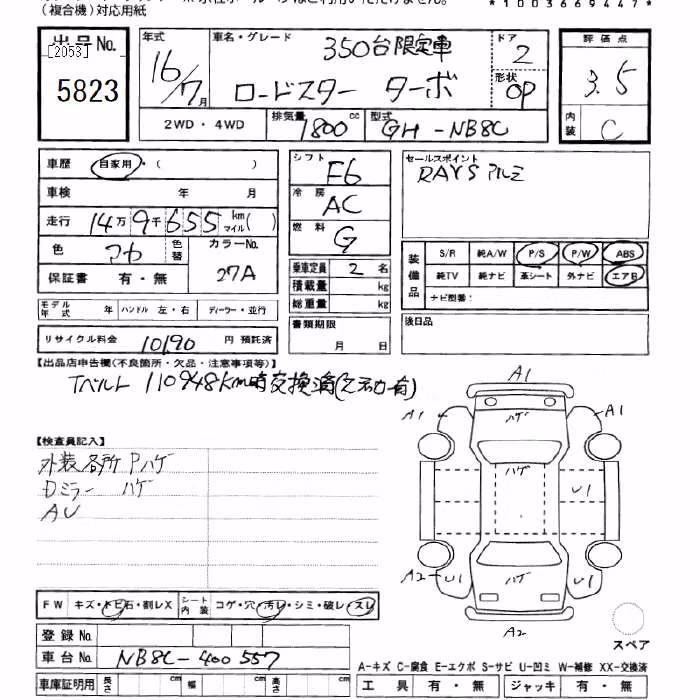 (複合機)対応用紙
*1003669447*
出品No.
[2053]
5823
年式
16/7月
車名・グレード
350台限定車
ロードスター ターボ
ドア
2
形状
OP
評価点
3.5
内装
C
2WD・4WD
排気量 1800 cc
型式 GH-NB8C
車歴 自家用・( )
車検 年 月
走行 14万9千655 km マイル( )
色 アカ 色替
カラーNo. 27A
保証書 有・無
シフト F6
冷房 AC
燃料 G
乗車定員 2名
積載量 kg
総重量 kg
書類期限
月 日
セールスポイント
RAYSアルミ
装備品
S/R 純A/W P/S P/W ABS
純TV 純ナビ 革シート 外ナビ エアB
ナビ型番:
後日品
モデル年式 年 ハンドル 左・右 ディーラー・並行
リサイクル料金 10190 円 預託済
【出品店申告欄(不良箇所・欠品・注意事項等)】
Tベルト 110948km時交換済
【検査員記入】
外装各所Pハゲ
Dミラー ハゲ
AU
A1
A1
A1
ハゲ
ハゲ
U1
A2
U1
ハゲ
U1
A2
スペア
FW キズ・トビ石・割レX シート内装 コゲ・穴・汚レ・シミ・破レ・スレ
登録No.
車台No. NB8C-400557
車庫証明用 長さ cm 幅 cm 高さ cm
A-キズ C-腐食 E-エクボ S-サビ U-凹ミ W-補修 XX-交換済
工具 有・無 ジャッキ 有・無